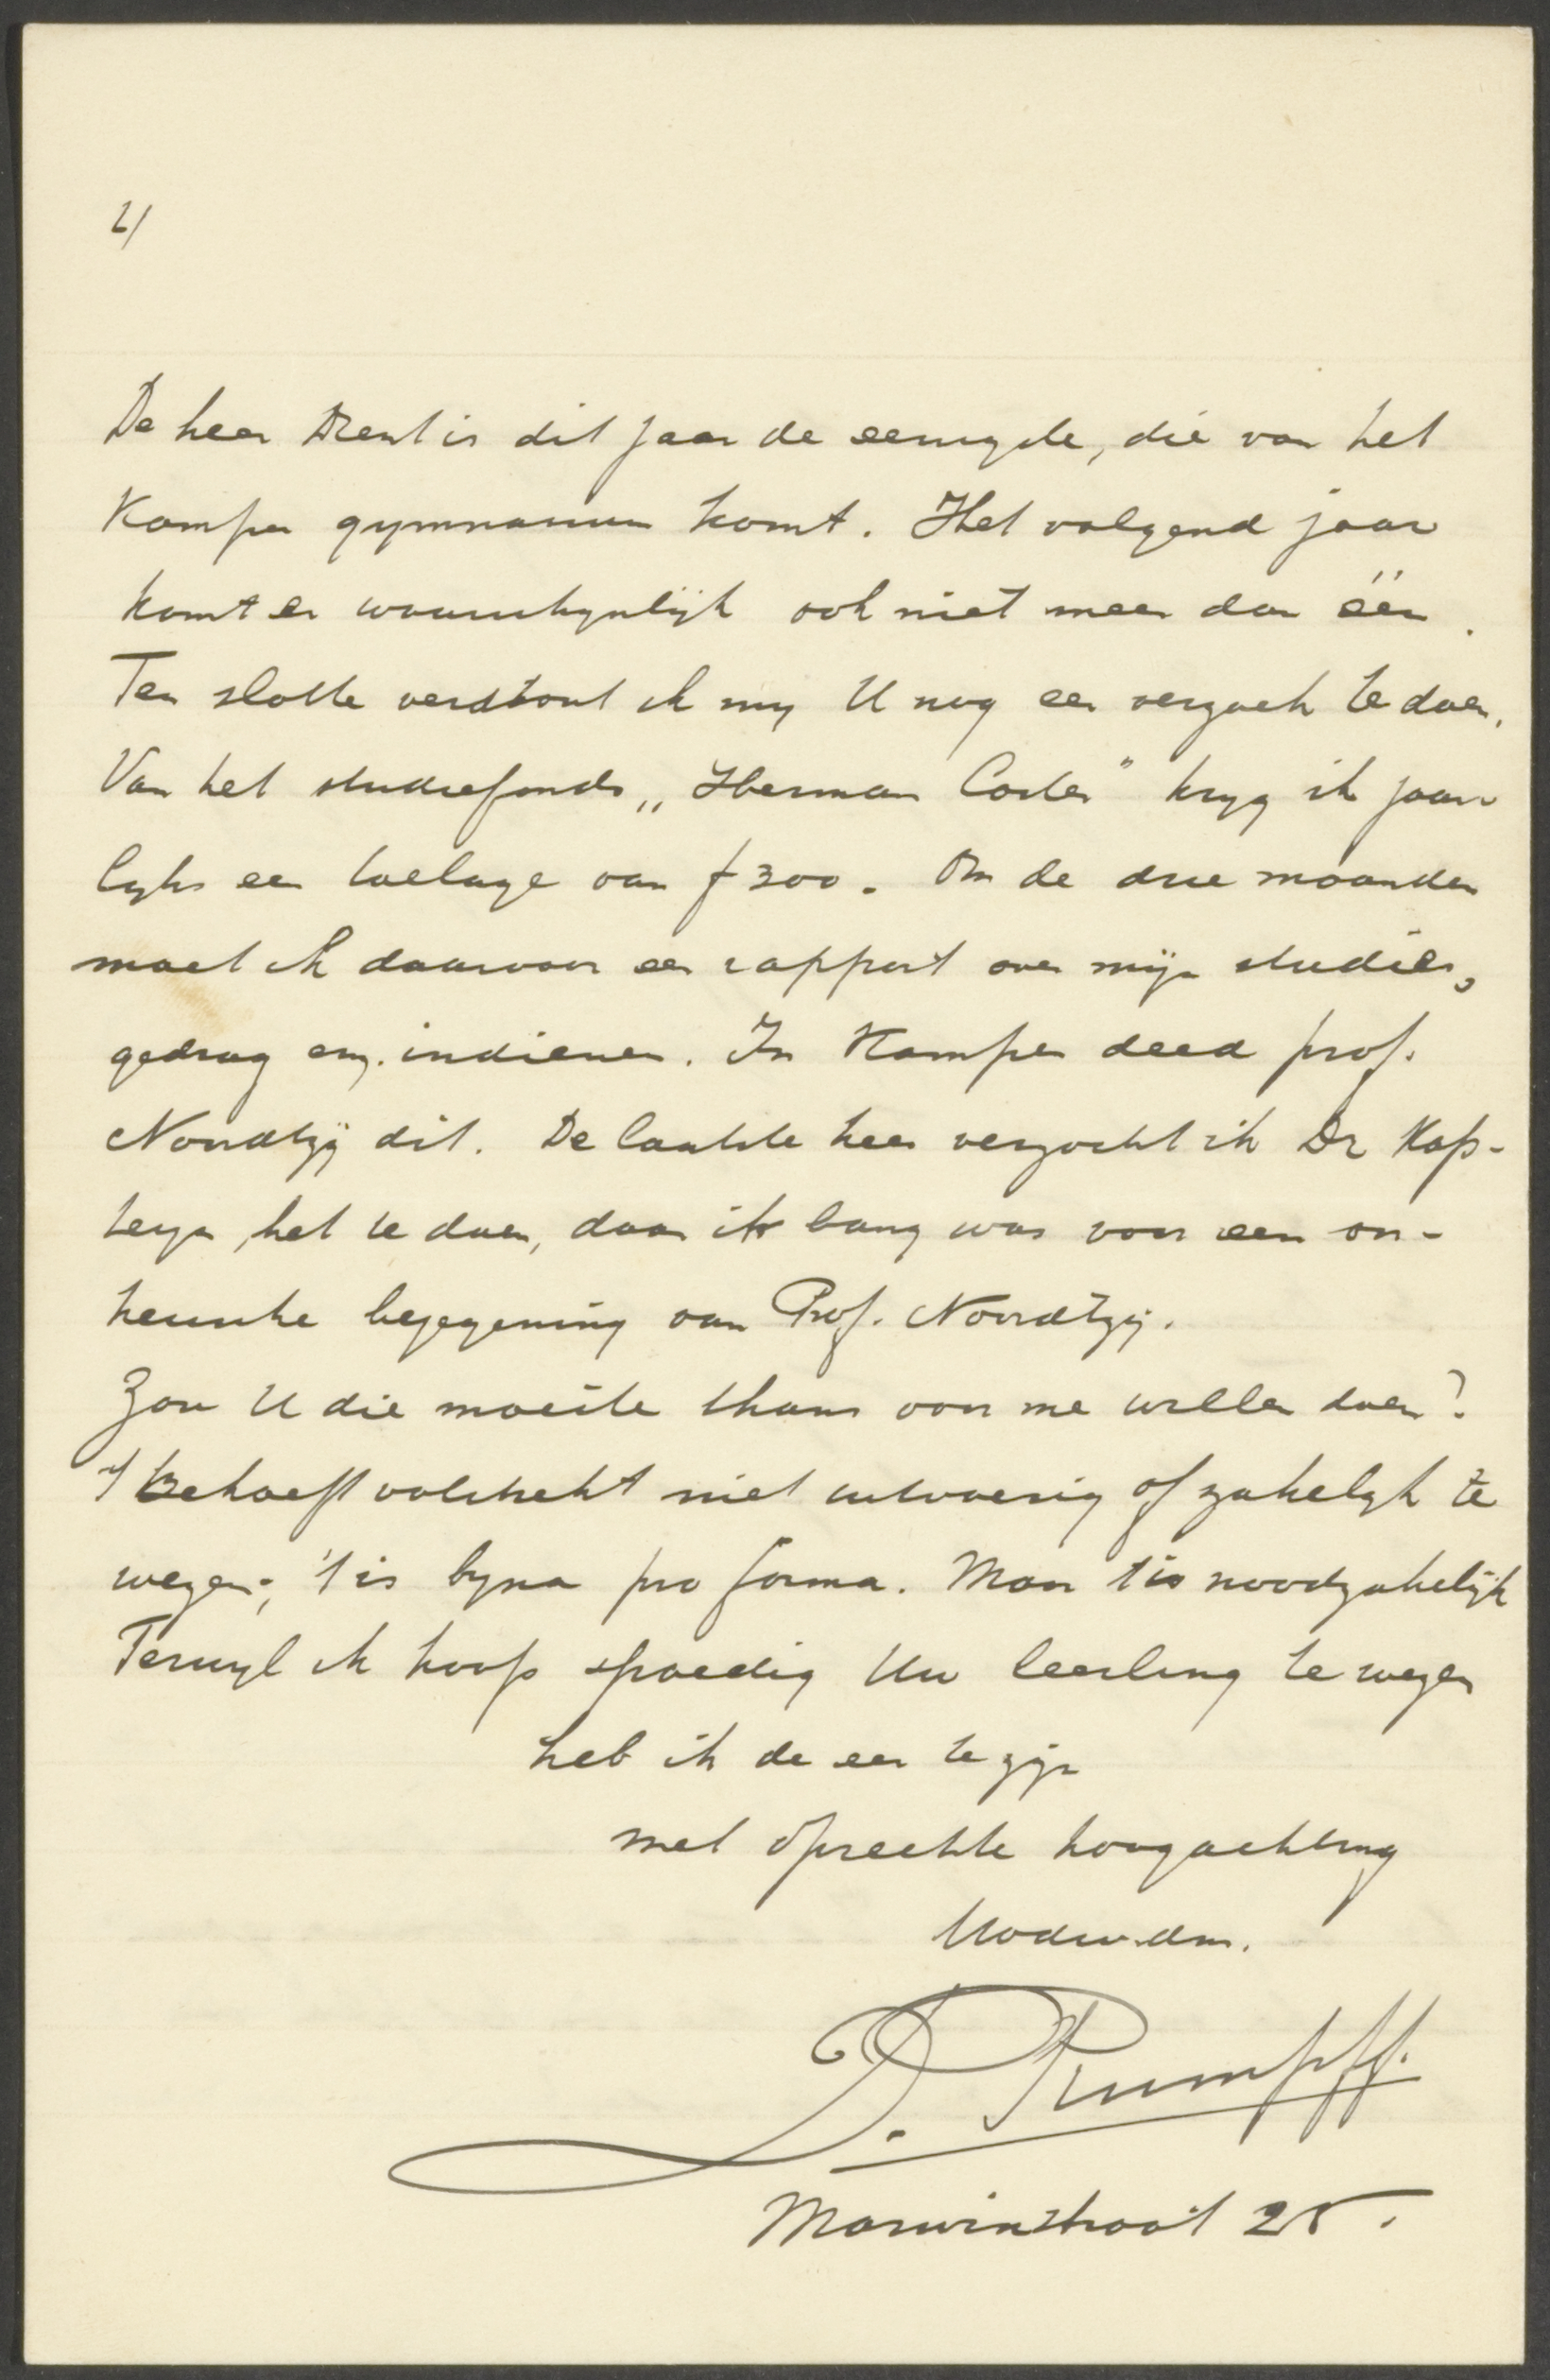 2/
De heer Drent is dit jaar de eenigste, die van het
Kamper gymnasium komt. Het volgend jaar
komt er waarschynlijk ook niet meer dan één.
Ten slotte verstout ik my U nog een verzoek te doen.
Van het studiefonds „Herman Coster" kryg ik jaar
lyks een toelage van f 300. Om de drie maanden
moet ik daarvoor een rapport over mijn studies,
gedrag enz. indienen. In Kampen deed prof.
Noordtzij dit. De laatste keer verzocht ik Dr Kap-
teyn, het te doen, daar ik bang was voor een on-
heusche bejegening van Prof. Noordtzij.
Zou U die moeite thans voor me willen doen?
't Behoeft volstrekt niet uitvoerig of zakelyk te
wezen; 't is byna pro forma. Maar 't is noodzakelijk
Terwyl ik hoop spoedig Uw leerling te wezen
heb ik de eer te zijn
met oprechte hoogachting
Uwdw.dnr.
D. Rumpff.
Marnixstraat 25.